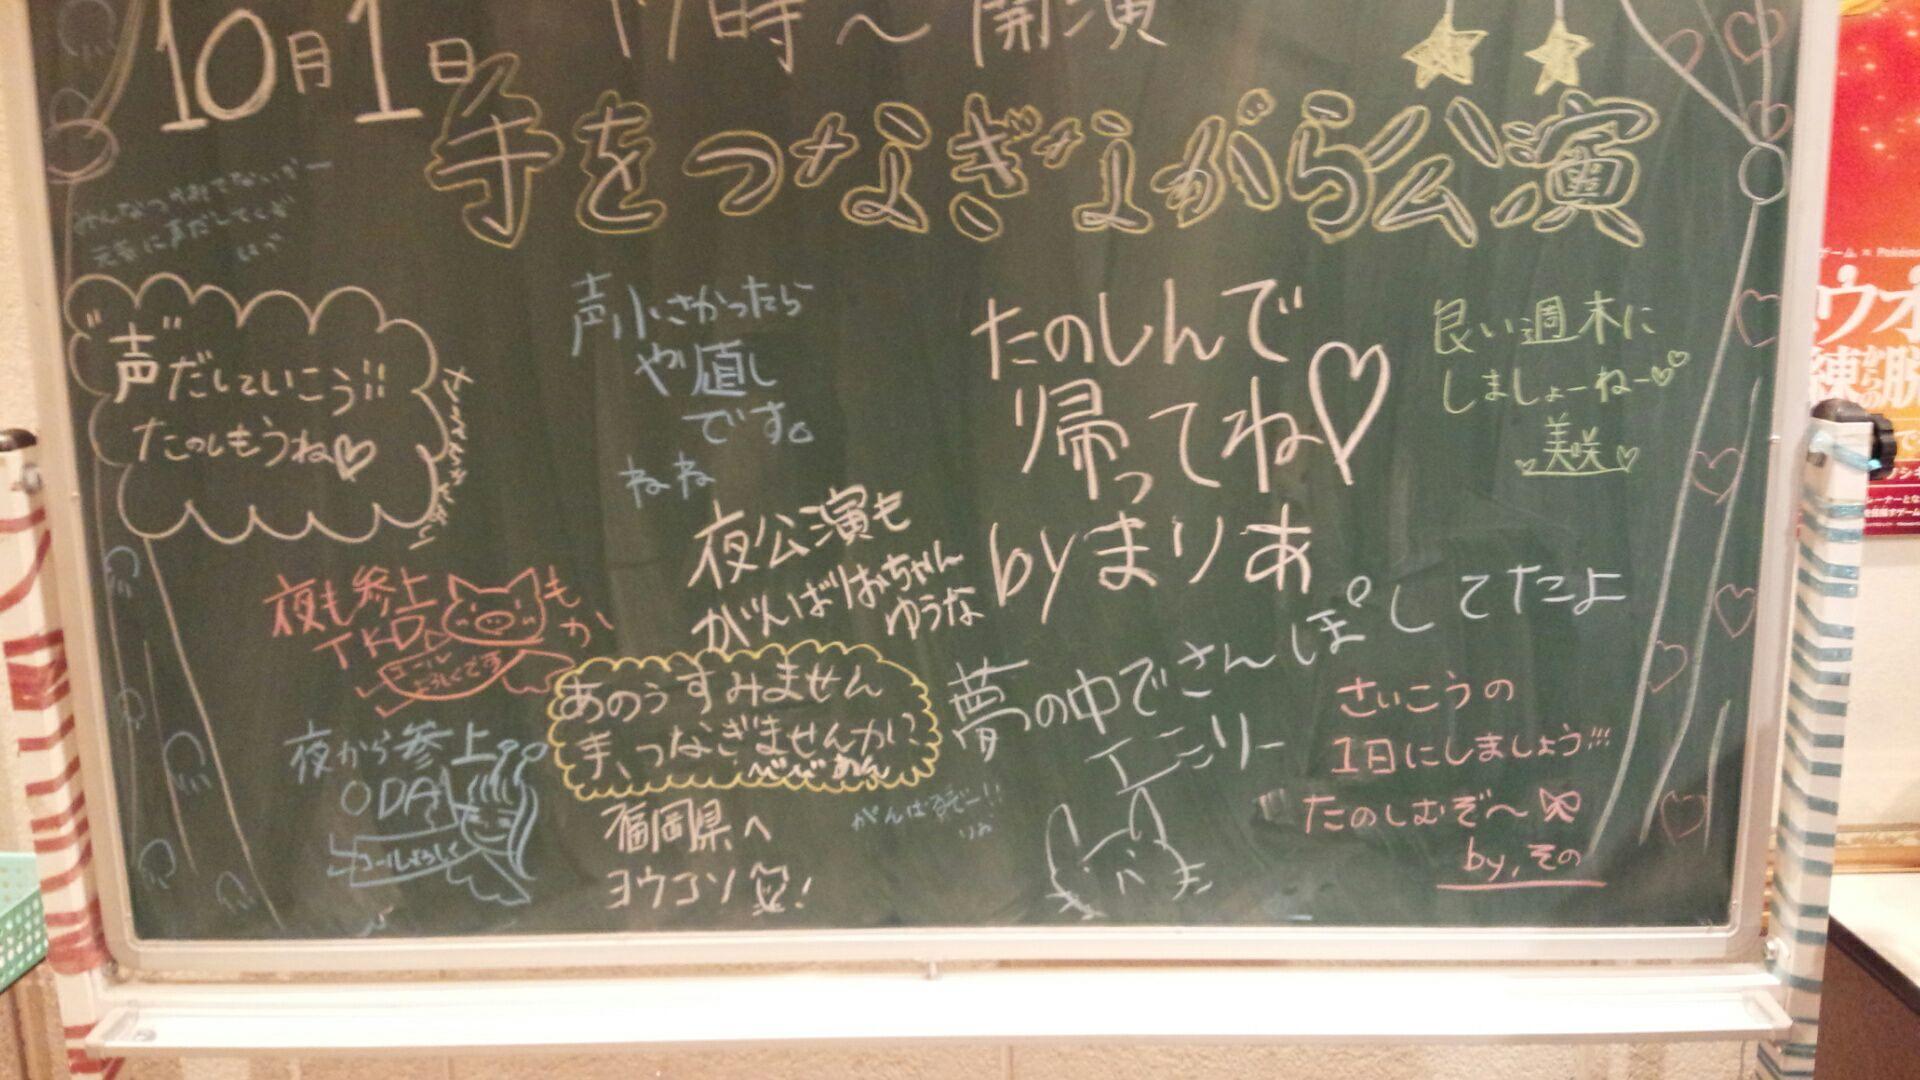 10月1日 17時〜開演
手をつなぎながら公演
元気に声だしてくぞ
"声"だしていこう!!
たのしもうね♡
声小さかったら
や直し
です。
ねね
たのしんで
帰ってね♡
byまりあ
良い週末に
しましょーねー♡♡
♡美咲♡
夜公演も
がんばりおちゃん
ゆうな
夜も参上
TKD
もか
コール
よろしくです
あのぅすみません
手、つなぎませんか!?
びびあん
夢の中でさんぽしてたよ
エミリー
さいこうの
1日にしましょう!!!
たのしむぞ〜
by,その
夜から参上
ODA
コールよろしく
福岡県へ
ヨウコソ!
がんばるぞー!!
りお